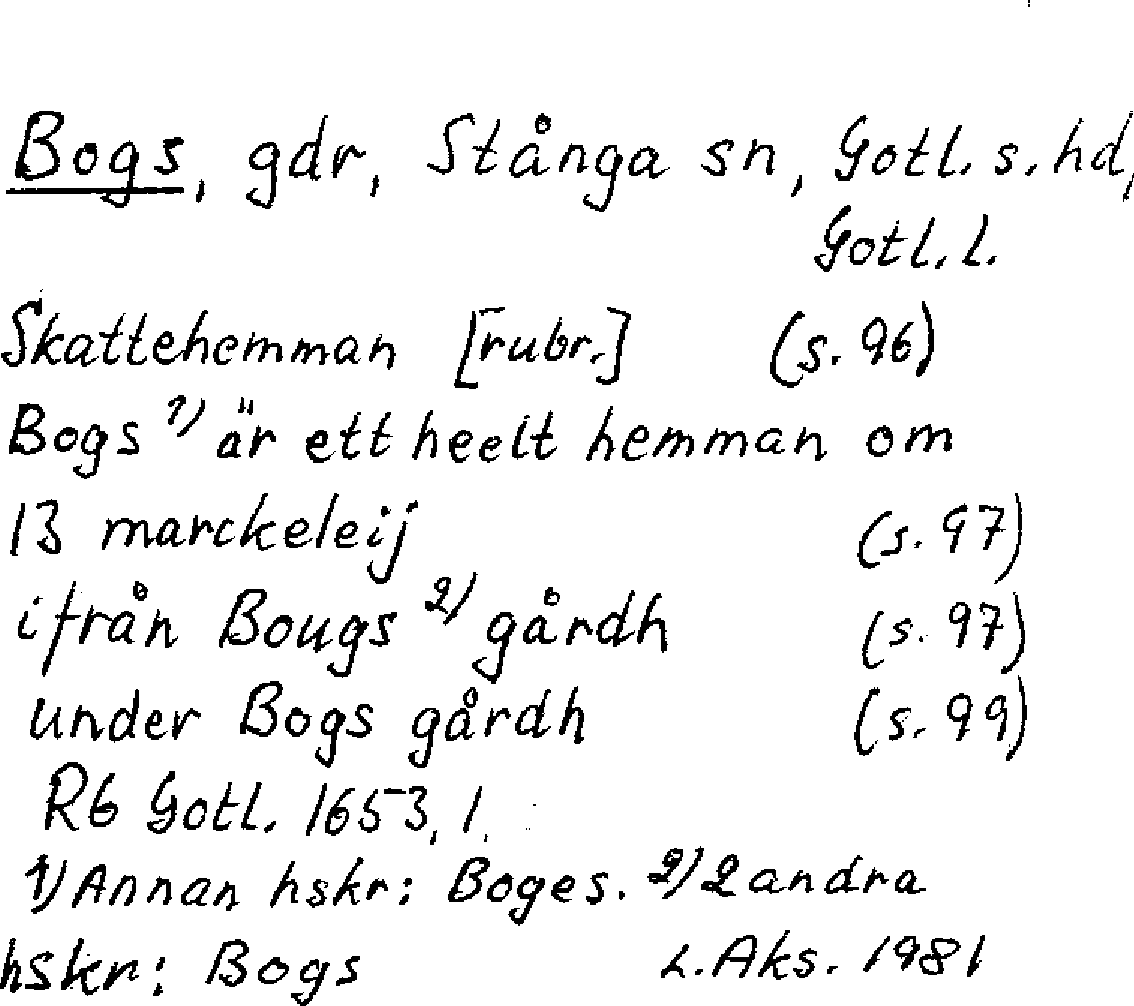 Bogs, gdr, Stånga sn, Gotl. s. hd,
Gotl. l.
Skattehemman [rubr.] (s. 96)
Bogs 1) är ett heelt hemman om
13 marckeleij (s. 97)
ifrån Bougs 2) gårdh (s. 97)
under Bogs gårdh (s. 99)
R6 Gotl. 1653, 1.
1) Annan hskr: Boges. 2) 2 andra
hskr: Bogs L. Aks. 1981